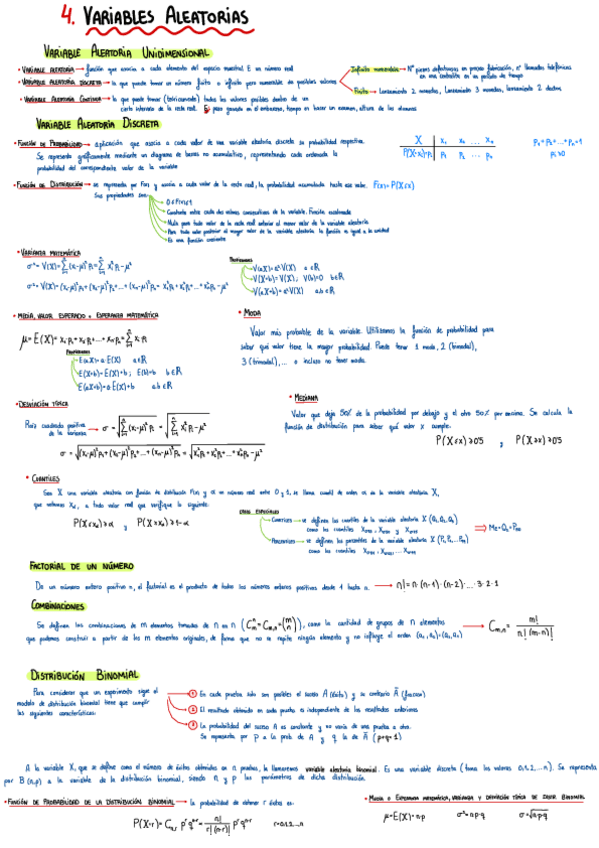 4. VARIABLES ALEATORIAS
VARIABLE ALEATORIA UNIDIMENSIONAL
• VARIABLE ALEATORIA → función que asocia a cada elemento del espacio muestral E un número real
Infinito numerable → Nº piezas defectuosas en proceso fabricación, nº llamadas telefónicas
en una centralita en un período de tiempo
• VARIABLE ALEATORIA DISCRETA → la que puede tomar un número finito o infinito pero numerable en posibles valores
Finito → Lanzamiento 2 monedas, Lanzamiento 3 monedas, lanzamiento 2 dados
• VARIABLE ALEATORIA CONTINUA → la que puede tomar (teóricamente) todos los valores posibles dentro de un
cierto intervalo de la recta real. Ej: peso ganado en el embarazo, tiempo en hacer un examen, altura de los alumnos
VARIABLE ALEATORIA DISCRETA
• FUNCIÓN DE PROBABILIDAD → aplicación que asocia a cada valor de una variable aleatoria discreta su probabilidad respectiva.
Se representa gráficamente mediante un diagrama de barras no acumulativo, representando cada ordenada la
probabilidad del correspondiente valor de la variable
X x₁ x₂ ... xₙ
P(X=xᵢ)=pᵢ p₁ p₂ ... pₙ
p₁+p₂+...+pₙ=1
pᵢ≥0
• FUNCIÓN DE DISTRIBUCIÓN → se representa por F(x) y asocia a cada valor de la recta real, la probabilidad acumulada hasta ese valor. F(x)=P(X≤x)
Sus propiedades son:
0≤F(x)≤1
Constante entre cada dos valores consecutivos de la variable. Función escalonada
Nula para todo valor de la recta real anterior al menor valor de la variable aleatoria
Para todo valor posterior al mayor valor de la variable aleatoria la función es igual a la unidad
Es una función creciente
• VARIANZA MATEMÁTICA
σ²=V(X)=∑(xᵢ-μ)²pᵢ=∑xᵢ²pᵢ-μ²
σ²=V(X)=(x₁-μ)²p₁+(x₂-μ)²p₂+...+(xₙ-μ)²pₙ=x₁²p₁+x₂²p₂+...+xₙ²pₙ-μ²
PROPIEDADES
V(aX)=a²V(X) a∈ℝ
V(X+b)=V(X); V(b)=0 b∈ℝ
V(aX+b)=a²V(X) a,b∈ℝ
• MEDIA, VALOR ESPERADO o ESPERANZA MATEMÁTICA
μ=E(X)=x₁p₁+x₂p₂+...+xₙpₙ=∑xᵢpᵢ
PROPIEDADES
E(aX)=a·E(X) a∈ℝ
E(X+b)=E(X)+b; E(b)=b b∈ℝ
E(aX+b)=a·E(X)+b a,b∈ℝ
• MODA
Valor más probable de la variable. Utilizamos la función de probabilidad para
saber qué valor tiene la mayor probabilidad. Puede tener 1 moda, 2 (bimodal),
3 (trimodal),... o incluso no tener moda.
• DESVIACIÓN TÍPICA
Raíz cuadrada positiva
de la varianza
σ=√∑(xᵢ-μ)²pᵢ=√∑xᵢ²pᵢ-μ²
σ=√(x₁-μ)²p₁+(x₂-μ)²p₂+...+(xₙ-μ)²pₙ=√x₁²p₁+x₂²p₂+...+xₙ²pₙ-μ²
• MEDIANA
Valor que deja 50% de la probabilidad por debajo y el otro 50% por encima. Se calcula la
función de distribución para saber qué valor x cumple.
P(X≤x)≥0'5 , P(X≥x)≥0'5
• CUANTILES
Sea X una variable aleatoria con función de distribución F(x) y α un número real entre 0 y 1, se llama cuantil de orden α de la variable aleatoria X,
que notamos xα, a todo valor real que verifique lo siguiente:
P(X≤xα)≥α , P(X≥xα)≥1-α
CASOS ESPECIALES
CUARTILES → se definen los cuartiles de la variable aleatoria X (Q₁,Q₂,Q₃)
como los cuantiles x₀.₂₅, x₀.₅₀ y x₀.₇₅
PERCENTILES → se definen los percentiles de la variable aleatoria X (P₁,P₂,...P₉₉)
como los cuantiles x₀.₀₁, x₀.₀₂,... x₀.₉₉
⇒ Me=Q₂=P₅₀
FACTORIAL DE UN NÚMERO
De un número entero positivo n, el factorial es el producto de todos los números enteros positivos desde 1 hasta n. → n!=n·(n-1)·(n-2)·...·3·2·1
COMBINACIONES
Se definen las combinaciones de m elementos tomados de n en n (Cₘⁿ=Cₘ,ₙ=(m n)), como la cantidad de grupos de n elementos
que podemos construir a partir de los m elementos originales, de forma que no se repita ningún elemento y no influye el orden (a₁,a₂)=(a₂,a₁)
Cₘ,ₙ=m!/n!(m-n)!
DISTRIBUCIÓN BINOMIAL
Para considerar que un experimento sigue el
modelo de distribución binomial tiene que cumplir
las siguientes características:
1 En cada prueba solo son posibles el suceso A (éxito) y su contrario Ā (fracaso)
2 El resultado obtenido en cada prueba es independiente de los resultados anteriores
3 La probabilidad del suceso A es constante y no varía de una prueba a otra.
Se representa por p a la prob de A y q la de Ā (p+q=1)
A la variable X, que se define como el número de éxitos obtenidos en n pruebas, la llamaremos variable aleatoria binomial. Es una variable discreta (toma los valores 0,1,2,...n). Se representa
por B(n,p) a la variable de la distribución binomial, siendo n y p los parámetros de dicha distribución.
• FUNCIÓN DE PROBABILIDAD DE LA DISTRIBUCIÓN BINOMIAL → la probabilidad de obtener r éxitos es:
P(X=r)=Cₙ,ᵣ pʳqⁿ⁻ʳ=n!/r!(n-r)! pʳqⁿ⁻ʳ r=0,1,2,...,n
• MEDIA o ESPERANZA MATEMÁTICA, VARIANZA y DESVIACIÓN TÍPICA DE DISTR. BINOMIAL
μ=E(X)=n·p σ²=n·p·q σ=√n·p·q